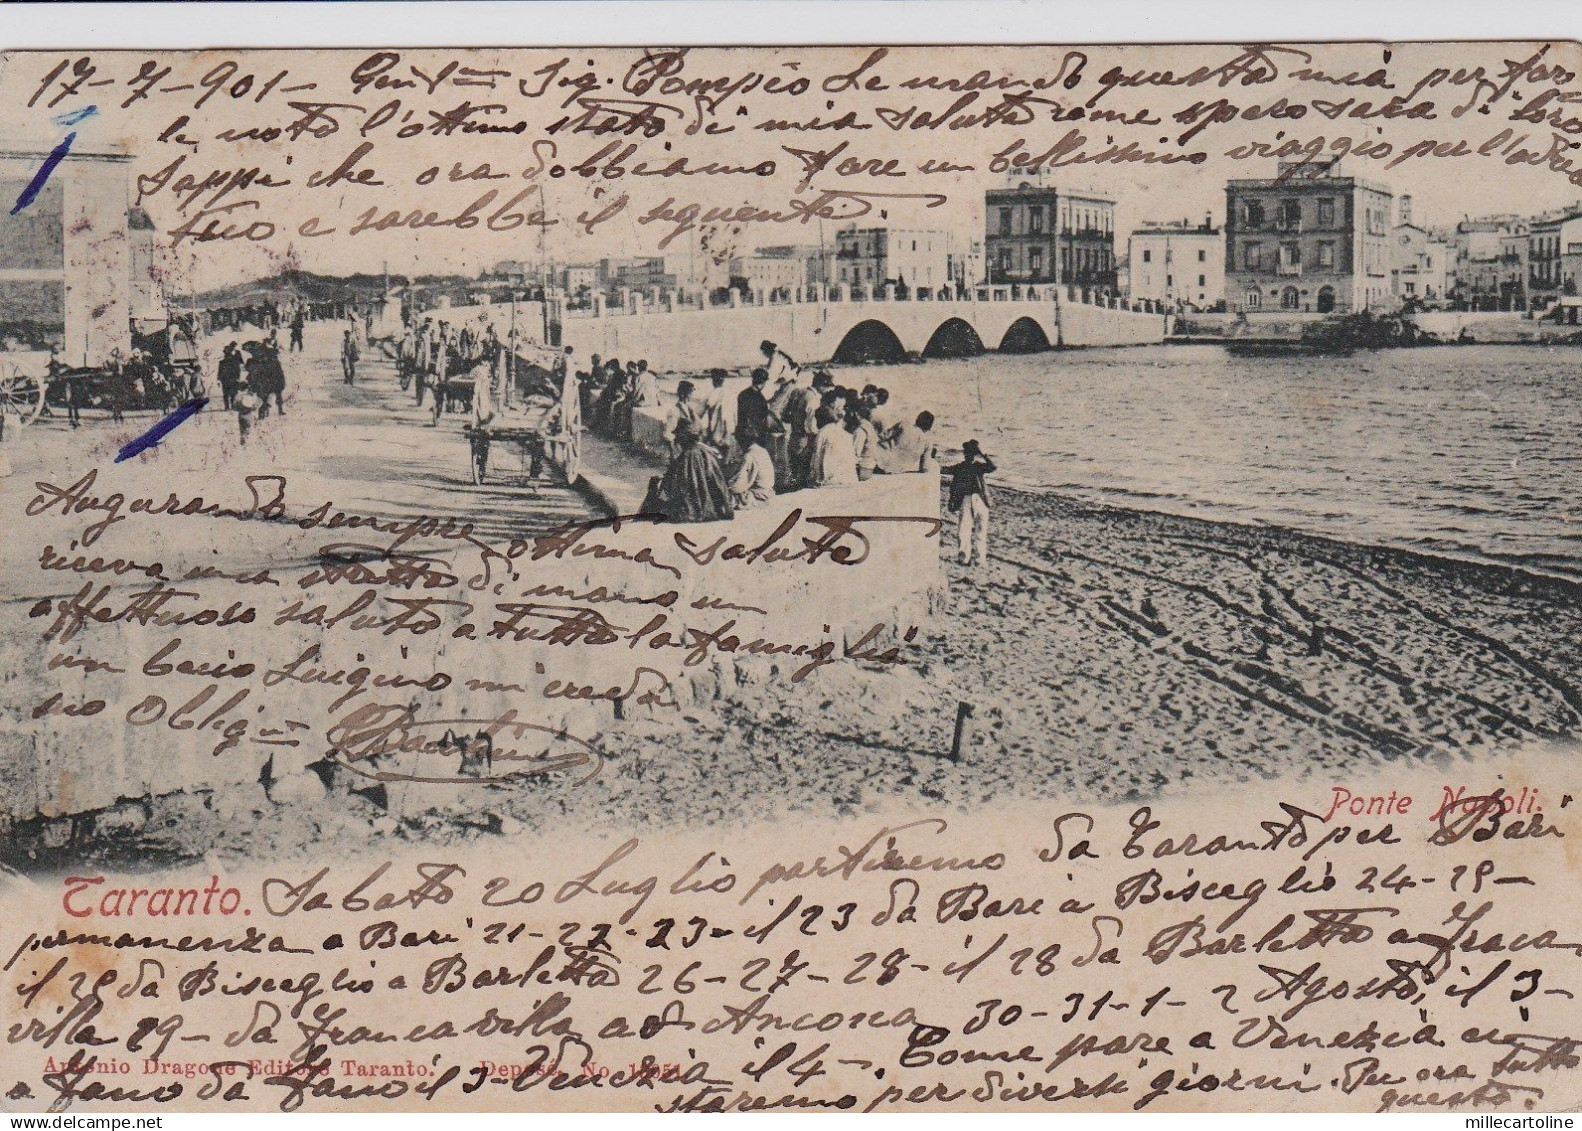 17-7-901- Gent= Sig. Pompéo Le mando questa mia per far
le noto l'ottimo stato di mia salute come spero sara di loro
Sappi che ora dobbiamo fare un bellissimo viaggio per l'adria
tico e sarebbe il seguente
Augurando sempre ottima salute
riceva una stretta di mano un
affettuoso saluto a tutta la famiglia
un bacio Luigino mi creda
suo Obblig=
Ponte Napoli.
Taranto. Sabato 20 Luglio partiremo da Taranto per Bari
permanenza a Bari 21-22-23- il 23 da Bari a Bisceglio 24-25-
il 25 da Bisceglio a Barletta 26-27-28- il 28 da Barletta a Franca
villa 29- da Francavilla ad Ancona 30-31-1-2 Agosto, il 3-
a Fano da Fano il 3- Venezia il 4-. Come pare a Venezia ci
staremo per diversi giorni. Per ora tutto
questo.
Antonio Dragone Editore Taranto. Deposé. No.
millecartoline.com